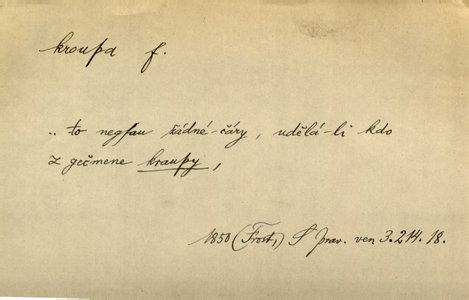 kroupa f.
„ to negsau žádné čáry, udělá-li kdo
z gečmene kraupy,
1850 (Frost,) S prav. ven 3.214.18.